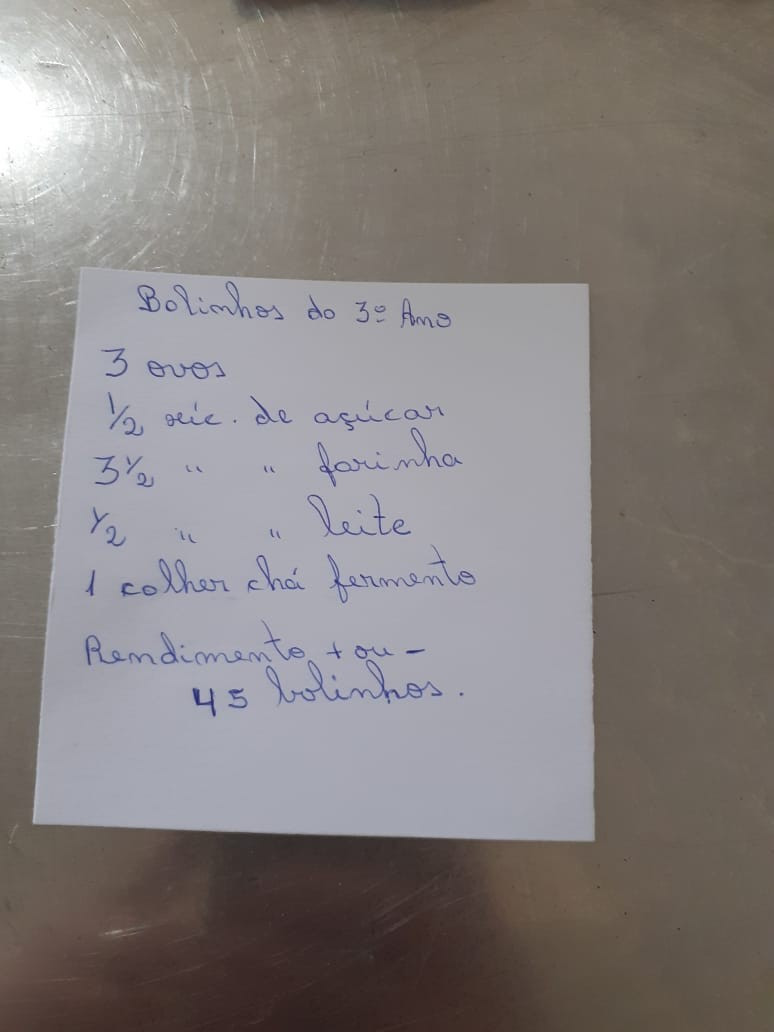 Bolinhos do 3º Ano
3 ovos
1/2 xíc. de açúcar
3 1/2 " " farinha
1/2 " " leite
1 colher chá fermento
Rendimento + ou -
45 bolinhos.